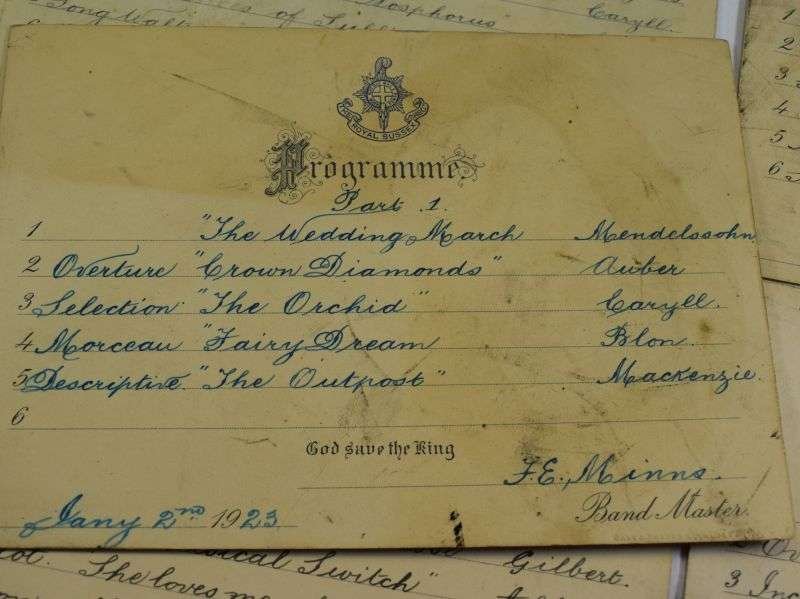 Song
of
Bosphorus" Caryll.
ROYAL SUSSEX
Programme.
Part .1.
1 "The Wedding March Mendelssohn
2 Overture "Crown Diamonds" Auber
3 Selection "The Orchid" Caryll.
4 Morceau "Fairy Dream Blon.
5 Descriptive. "The Outpost" Mackenzie.
6
God save the King
F.E. Minns.
Jany 2nd 1923
Band Master.
Switch" Gilbert.
"She loves me
1
2
3
4
5
6
3